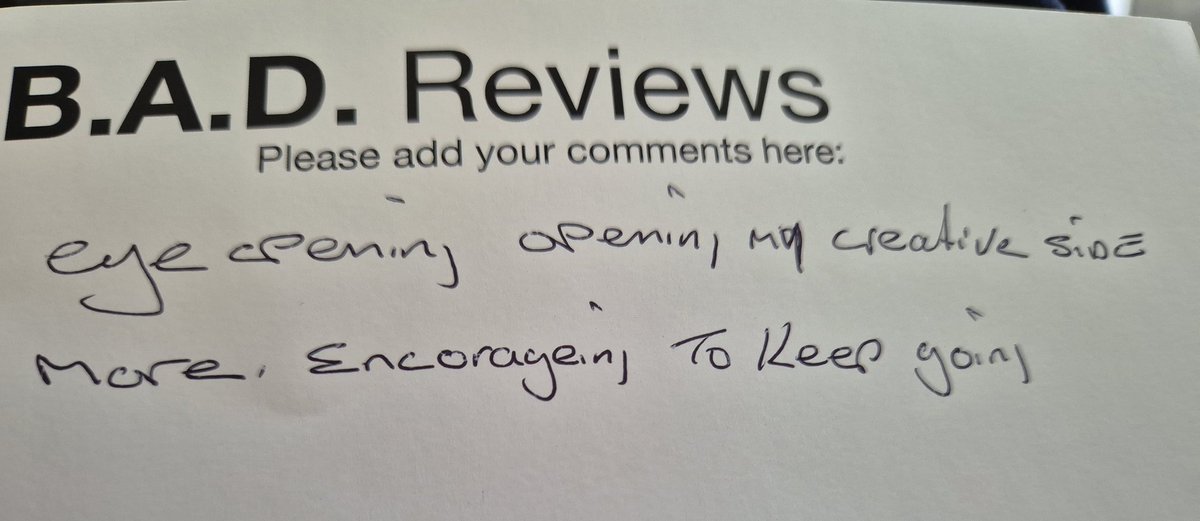 B.A.D. Reviews
Please add your comments here:
eye opening opening my creative side
More. Encorageing To Keep going